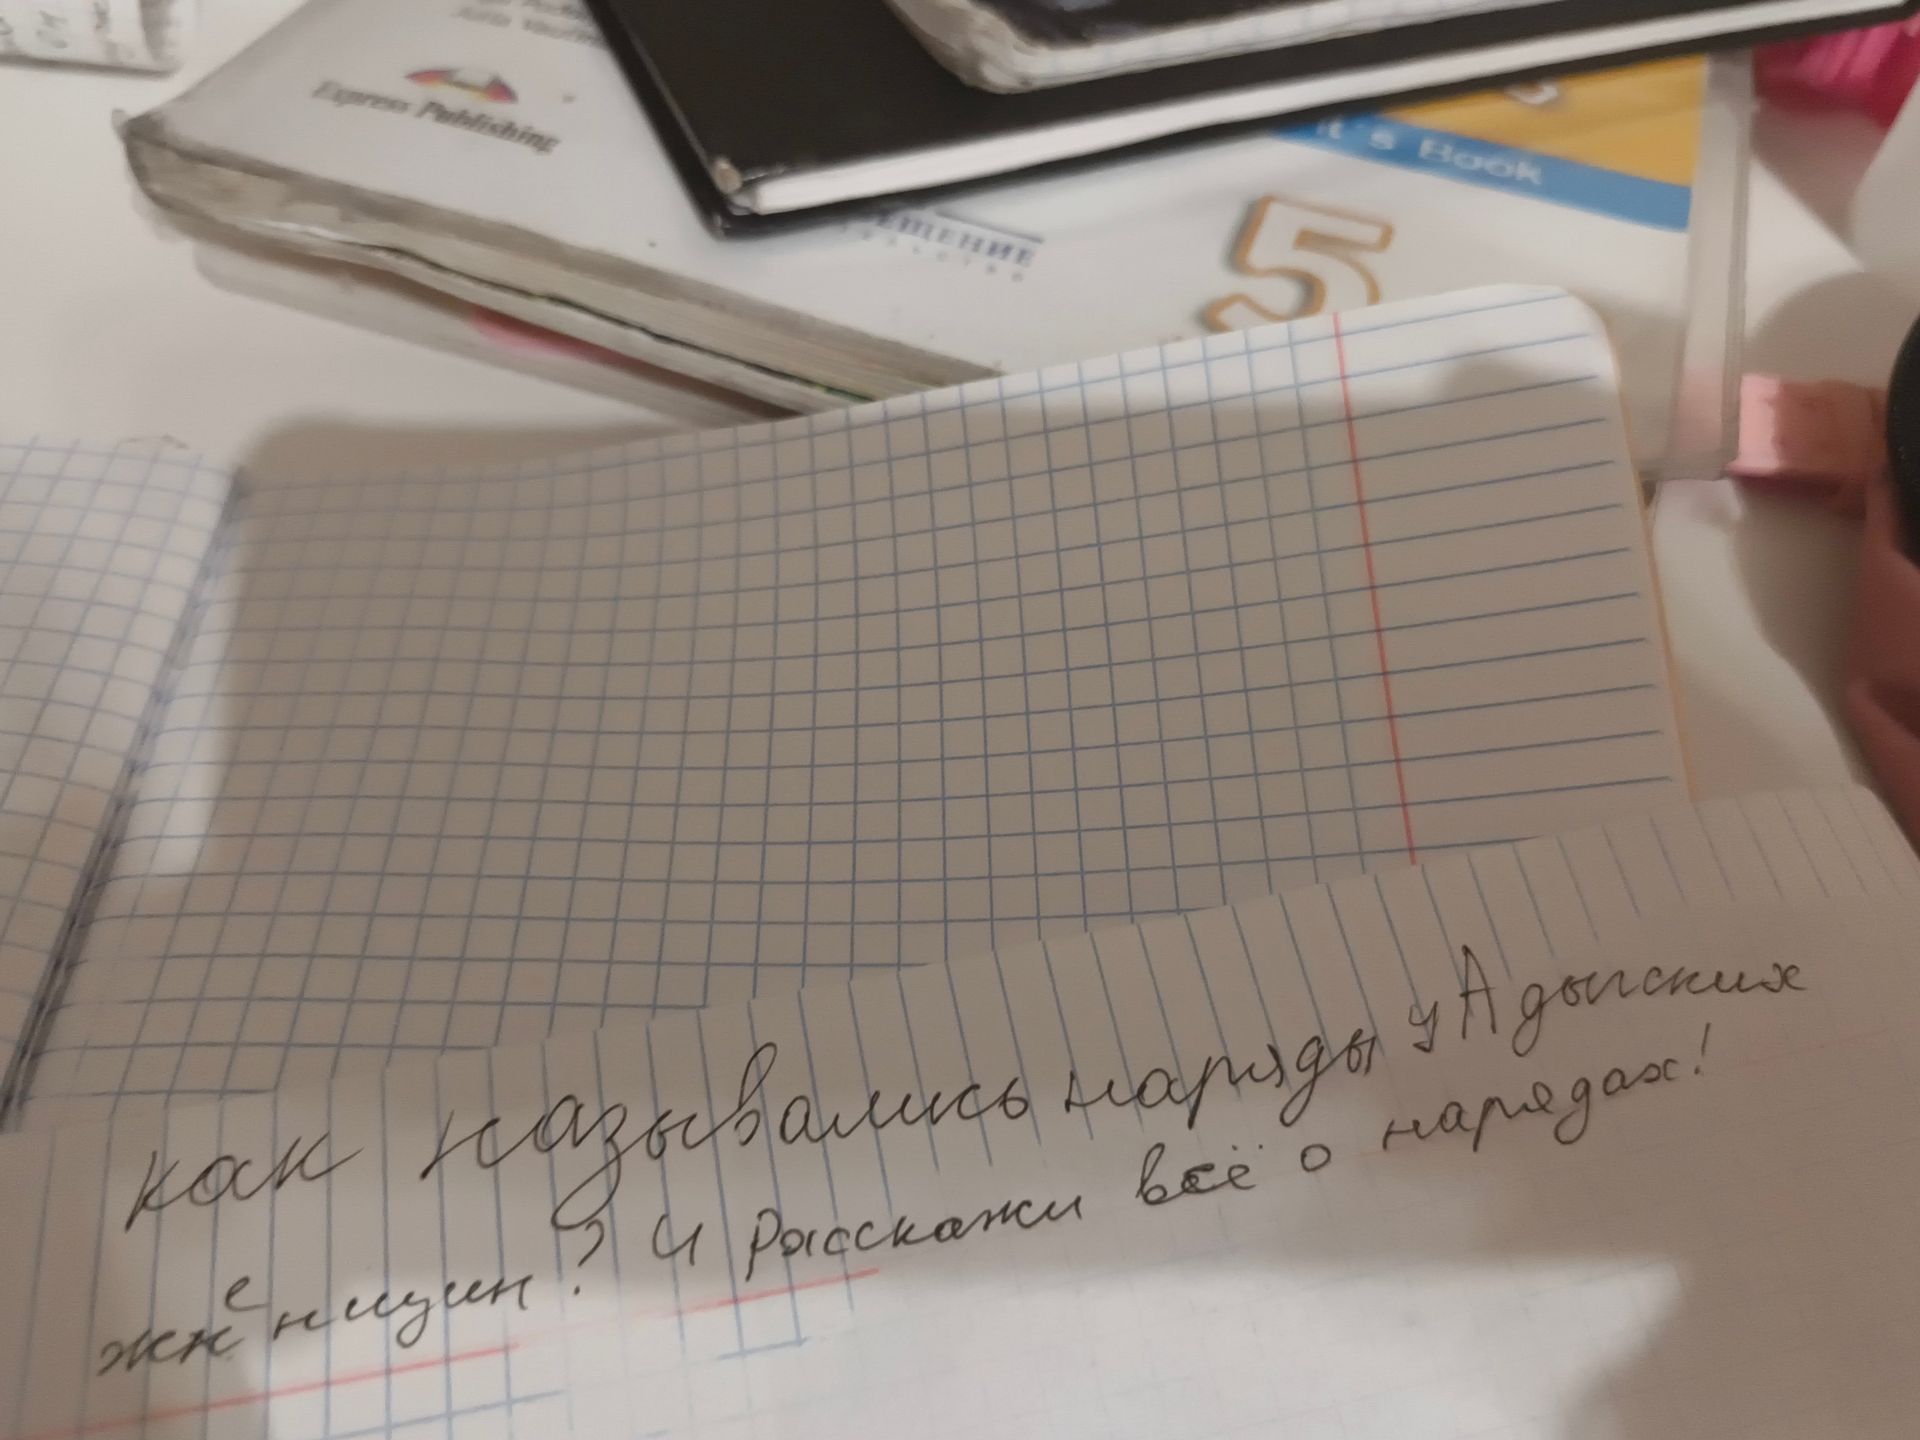 Express Publishing
ЕЩЕНИЕ
t's Book
5
как назывались наряды у Адыгских
женщин? И расскажи всё о нарядах!